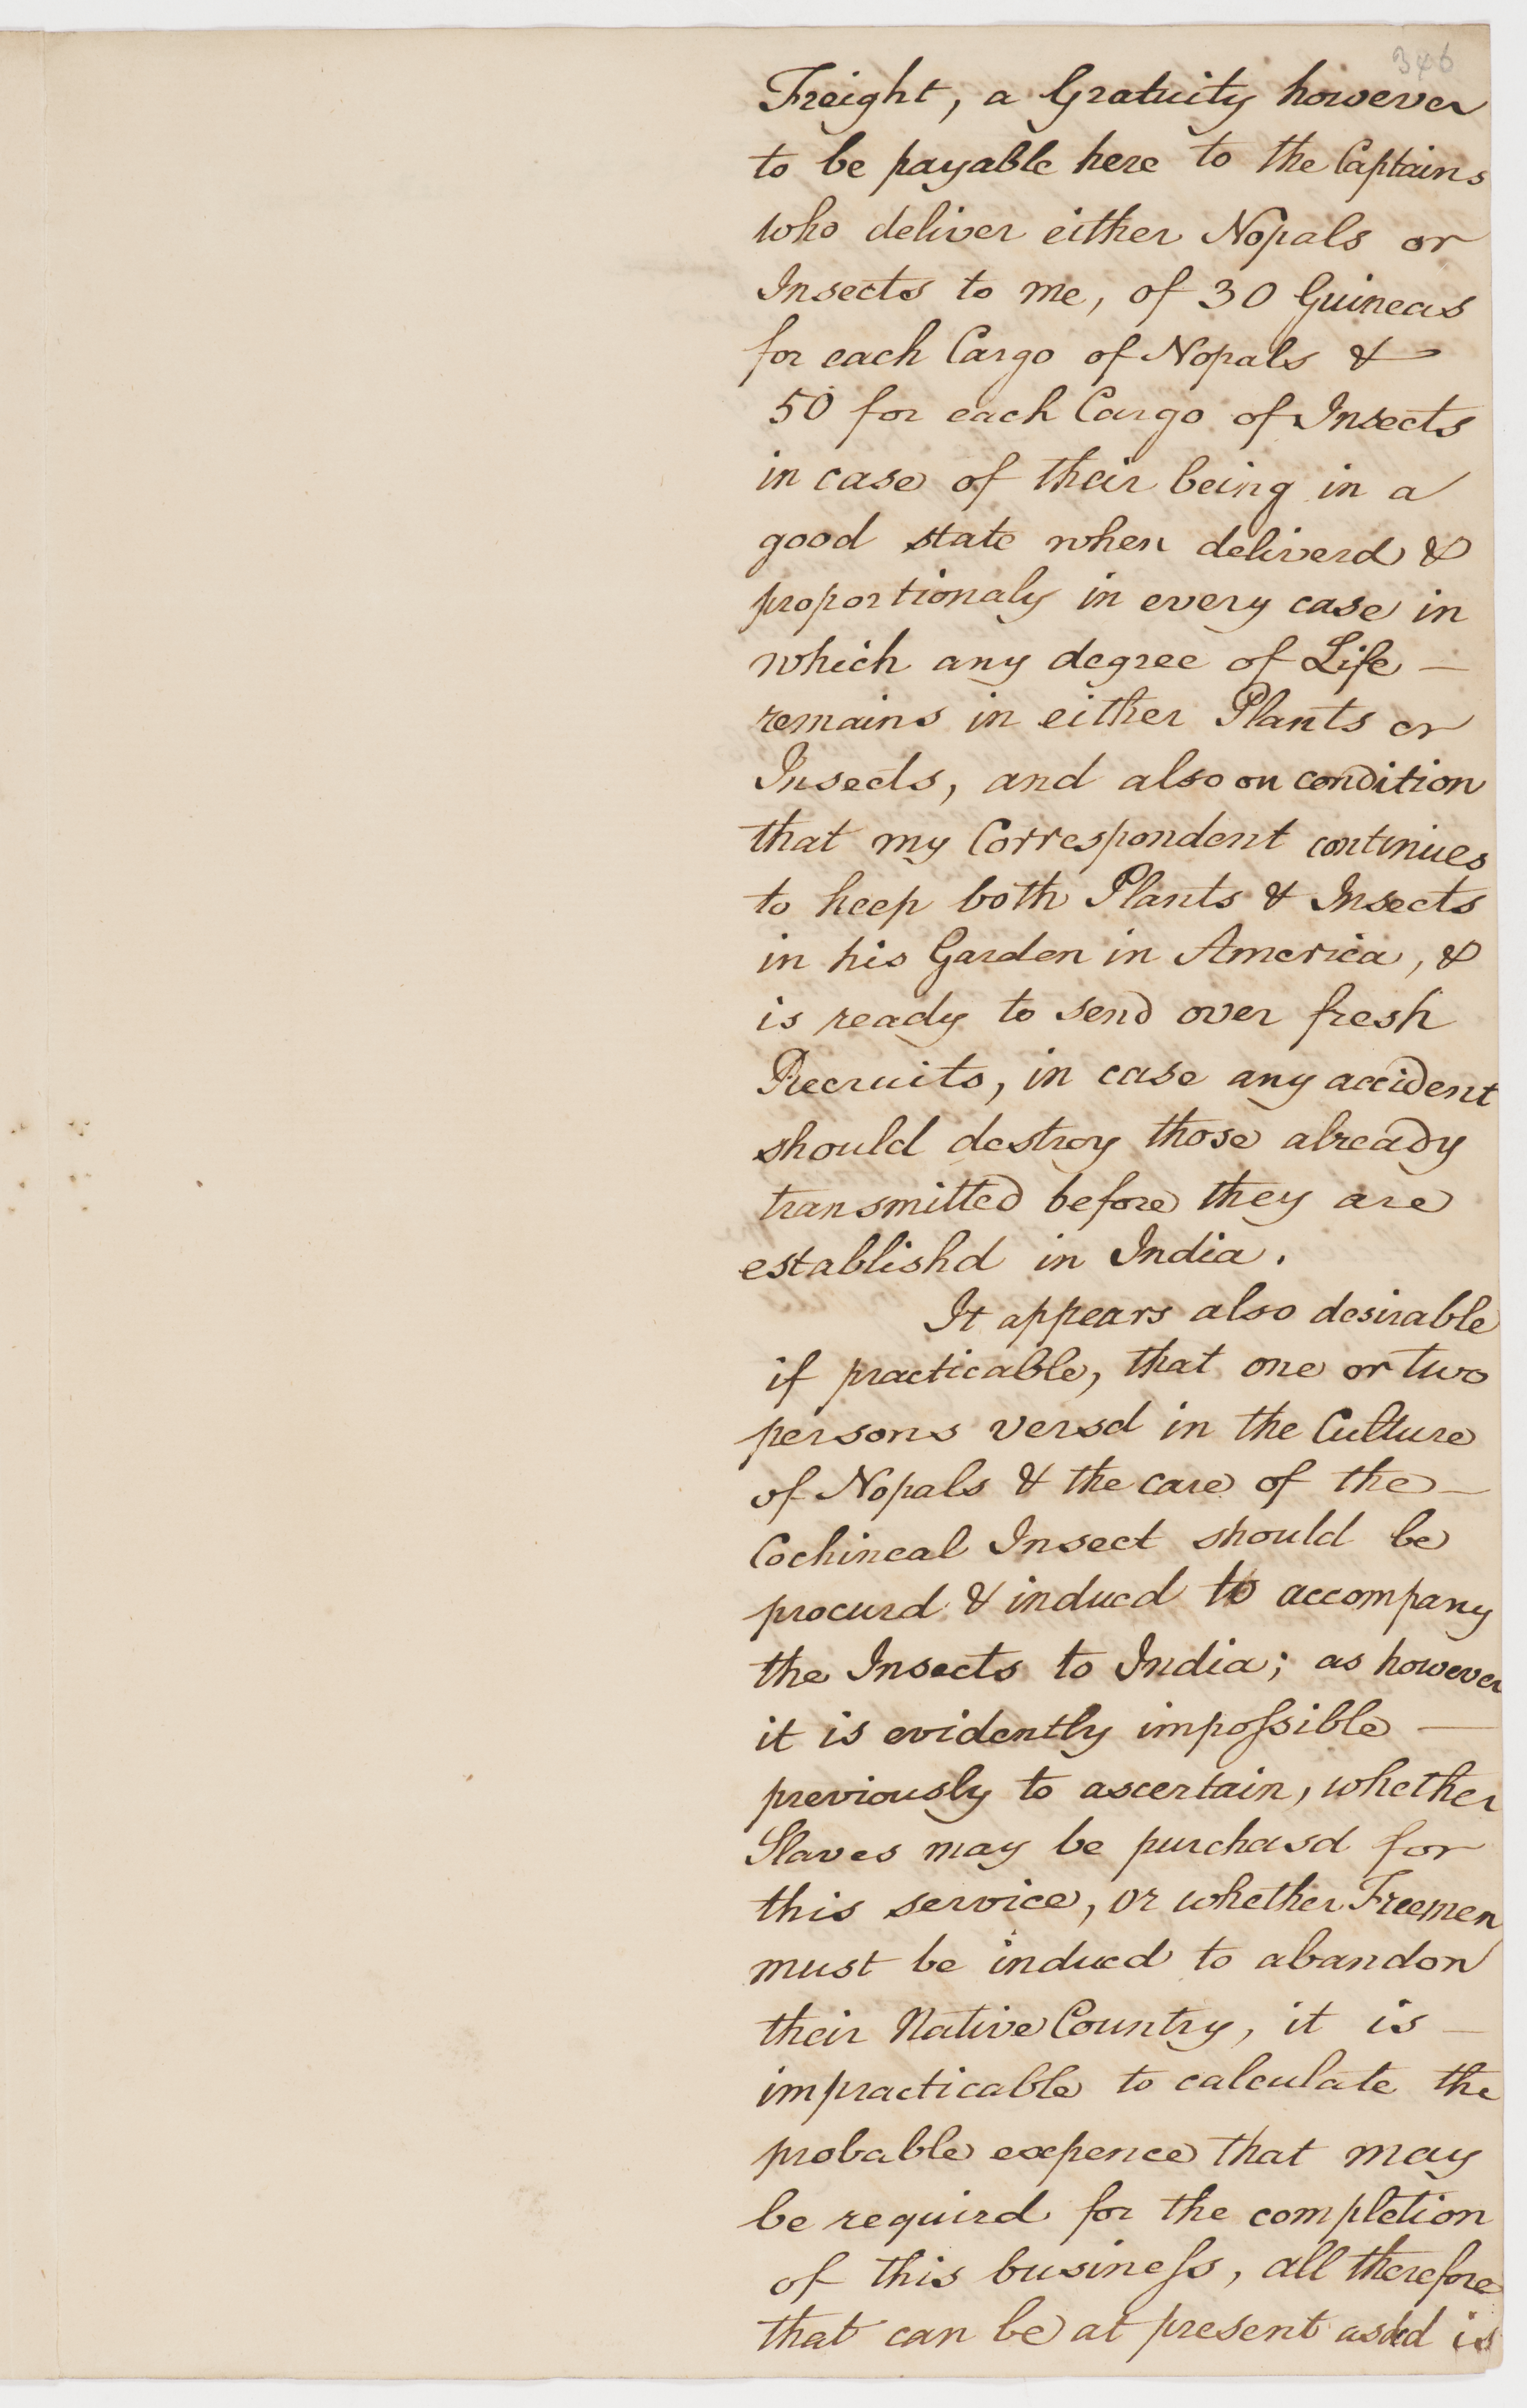 346
Freight, a Gratuity however
to be payable here to the Captains
who deliver either Nopals or
Insects to me, of 30 Guineas
for each Cargo of Nopals &
50 for each Cargo of Insects
in case of their being in a
good state when deliverd &
proportionaly in every case in
which any degree of Life —
remains in either Plants or
Insects, and also on condition
that my Correspondent continues
to keep both Plants & Insects
in his Garden in America, &
is ready to send over fresh
Recruits, in case any accident
should destroy those already
transmitted before they are
establishd in India.
It appears also desirable
if practicable, that one or two
persons versd in the Culture
of Nopals & the care of the —
Cochineal Insect should be
procurd & inducd to accompany
the Insects to India; as however
it is evidently impoſsible —
previously to ascertain, whether
Slaves may be purchasd for
this service, or whether Freemen
must be inducd to abandon
their Native Country, it is —
impracticable to calculate the
probable expence that may
be requird for the completion
of this busineſs, all therefore
that can be at present askd is